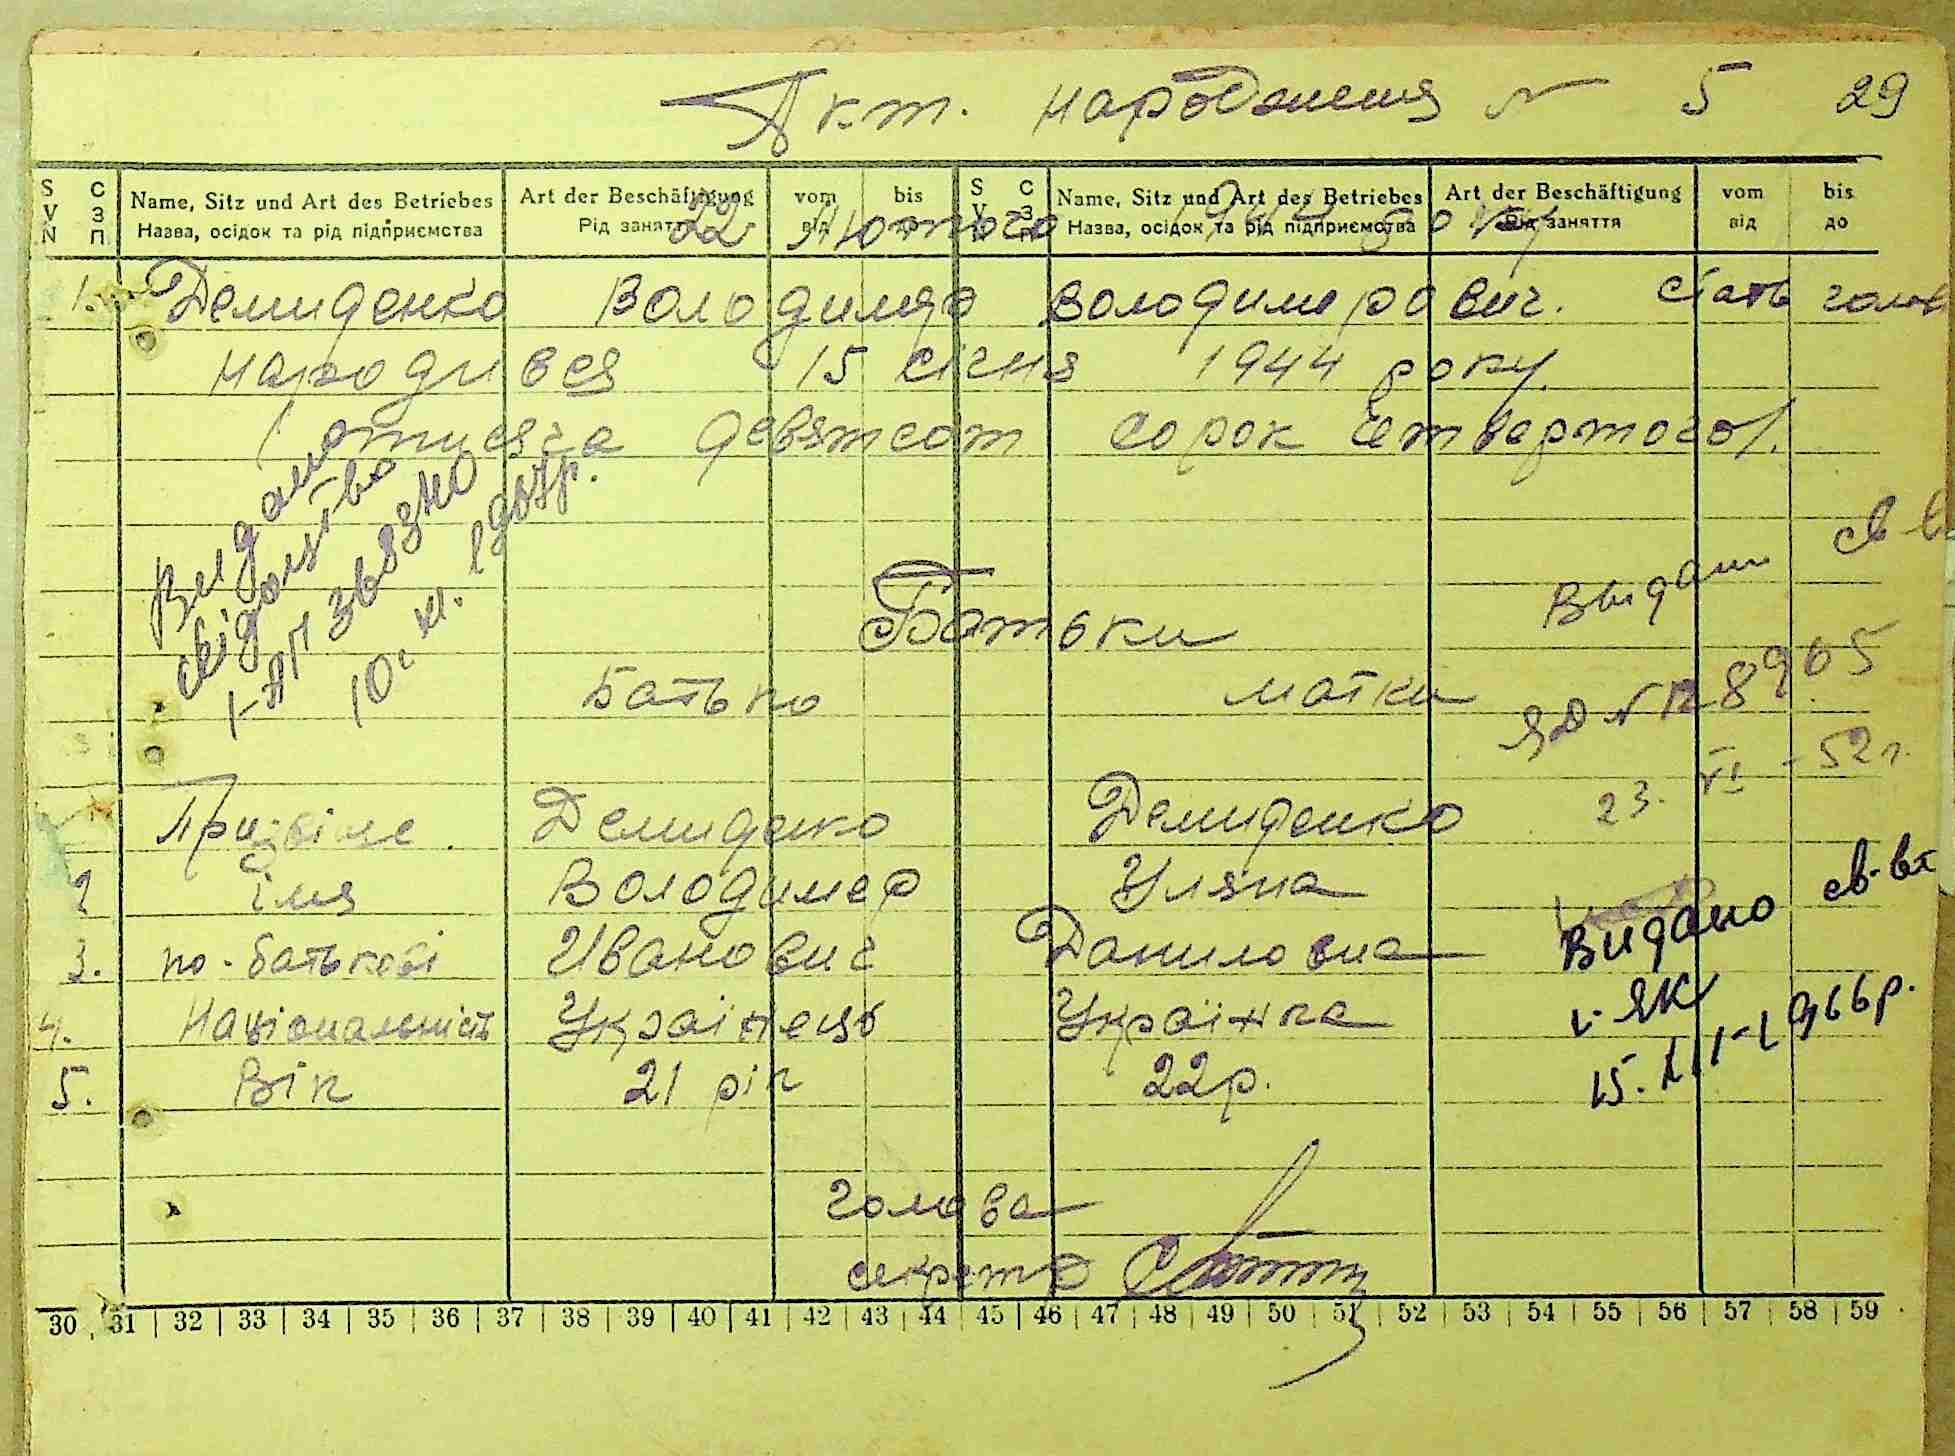 Акт. народження N 5 29
S V N С З П Name, Sitz und Art des Betriebes Назва, осідок та рід підприємства Art der Beschäftigung Рід заняття vom від bis до S V N С З П Name, Sitz und Art des Betriebes Назва, осідок та рід підприємства Art der Beschäftigung Рід заняття vom від bis до
22 лютого 1944 року
1. Демиденко Володимир Володимерович. стать чолов
народився 15 січня 1944 року
(тисяча девятсот сорок четвертого).
Видано
свідоцтво
І-АП
10. 1967р.
Батьки
Видан св-в
ЯД N 128965
23. VI - 52 г.
Батько матки
Призвіще. Демиденко Демиденко
2 імя Володимер Уляна
3. по-батькові Иванович Даниловна
4. Національність Українець Українка
5. Вік 21 рік 22р.
Видано св-во
І-ЯК
15. III-1966р.
голова
секретар
30 31 32 33 34 35 36 37 38 39 40 41 42 43 44 45 46 47 48 49 50 51 52 53 54 55 56 57 58 59